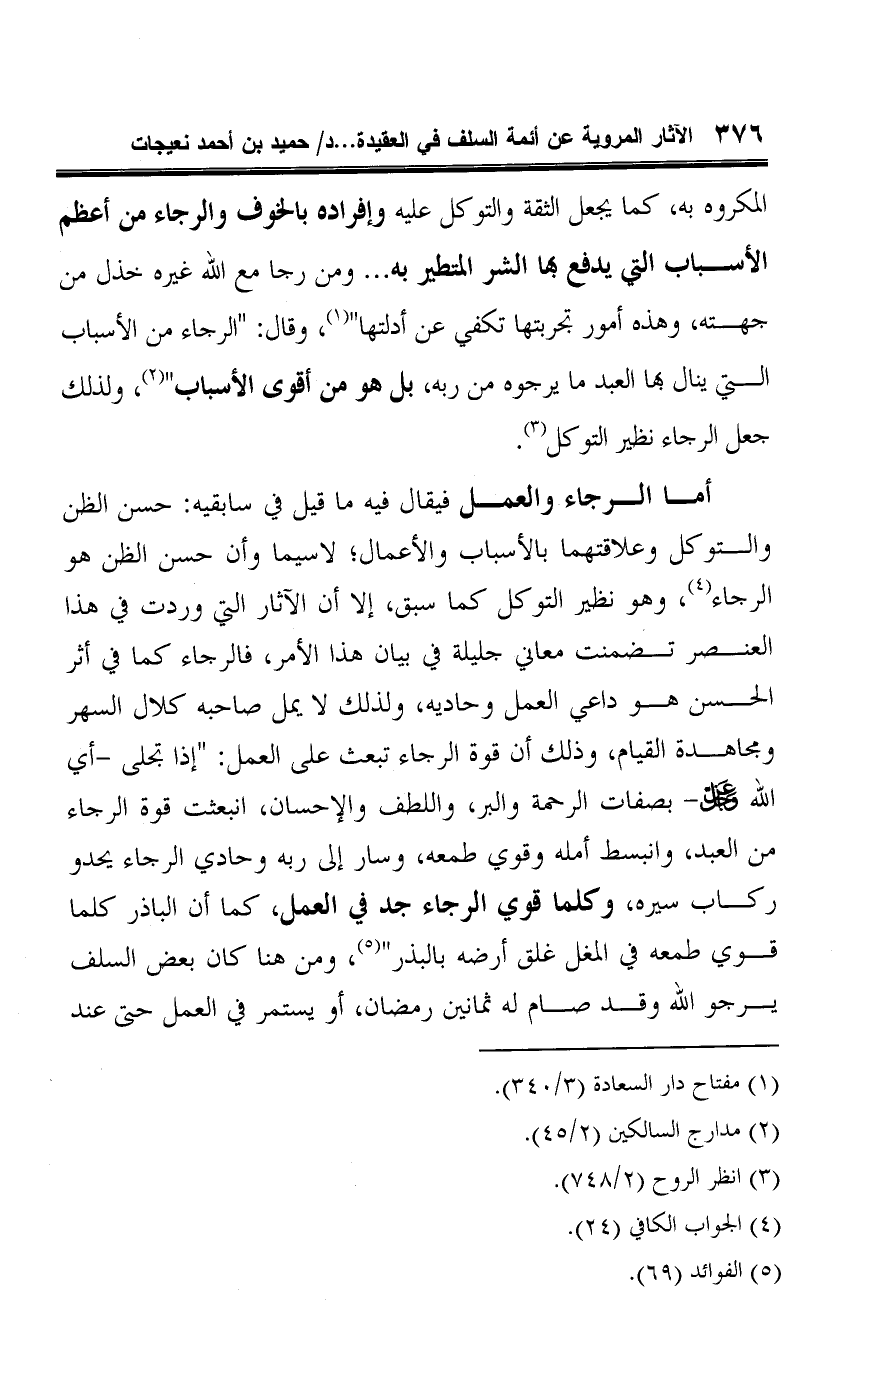 ٣٧٦ الآثار المروية عن أئمة السلف في العقيدة...د/ حميد بن أحمد نعيجات
المكروه به، كما يجعل الثقة والتوكل عليه وإفراده بالخوف والرجاء من أعظم
الأسباب التي يدفع بها الشر المتطير به... ومن رجا مع الله غيره خذل من
جهته، وهذه أمور تجربتها تكفي عن أدلتها"(١)، وقال: "الرجاء من الأسباب
التي ينال بها العبد ما يرجوه من ربه، بل هو من أقوى الأسباب"(٢)، ولذلك
جعل الرجاء نظير التوكل(٣).
أما الرجاء والعمل فيقال فيه ما قيل في سابقيه: حسن الظن
والتوكل وعلاقتهما بالأسباب والأعمال؛ لاسيما وأن حسن الظن هو
الرجاء(٤)، وهو نظير التوكل كما سبق، إلا أن الآثار التي وردت في هذا
العنصر تضمنت معاني جليلة في بيان هذا الأمر، فالرجاء كما في أثر
الحسن هو داعي العمل وحاديه، ولذلك لا يمل صاحبه كلال السهر
ومجاهدة القيام، وذلك أن قوة الرجاء تبعث على العمل: "إذا تجلى -أي
الله عز وجل- بصفات الرحمة والبر، واللطف والإحسان، انبعثت قوة الرجاء
من العبد، وانبسط أمله وقوي طمعه، وسار إلى ربه وحادي الرجاء يحدو
ركاب سيره، وكلما قوي الرجاء جد في العمل، كما أن الباذر كلما
قوي طمعه في المغل غلق أرضه بالبذر"(٥)، ومن هنا كان بعض السلف
يرجو الله وقد صام له ثمانين رمضان، أو يستمر في العمل حتى عند
(١) مفتاح دار السعادة (٣٤٠/٣).
(٢) مدارج السالكين (٤٥/٢).
(٣) انظر الروح (٧٤٨/٢).
(٤) الجواب الكافي (٢٤).
(٥) الفوائد (٦٩).